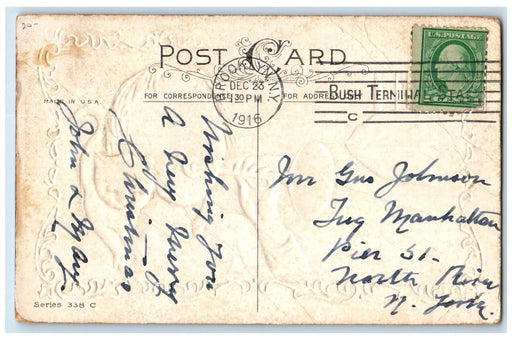 20-
POST CARD
MADE IN U.S.A.
FOR CORRESPONDENCE
FOR ADDRESS
BROOKLYN, N.Y.
DEC 23
30 PM
1916
BUSH TERMINAL STA.
C
U.S. POSTAGE
Wishing You
A Very Merry
Christmas
John & May
Mr Gus Johnson
Tug Manhattan
Pier 51-
North River
N. York.
Series 338 C